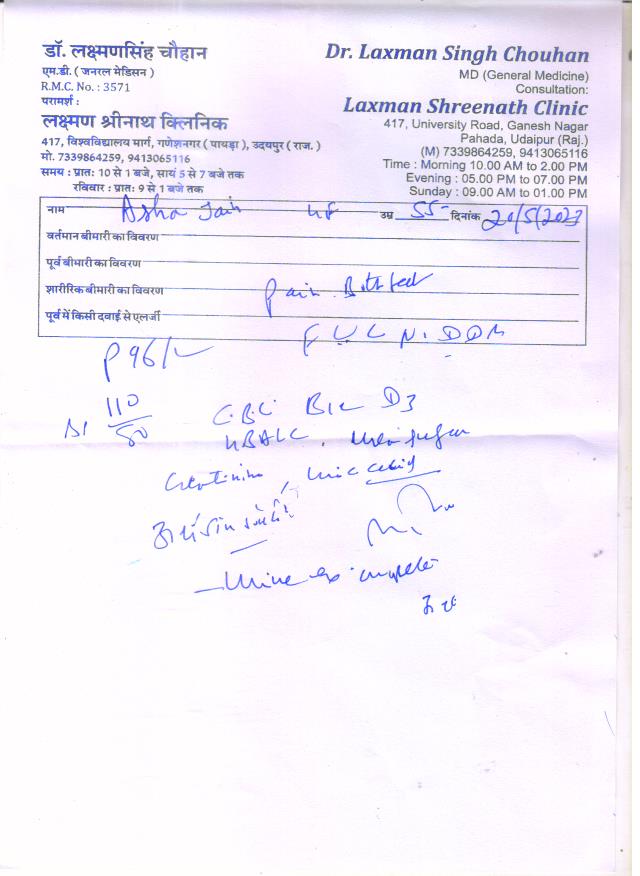 डॉ. लक्ष्मणसिंह चौहान
एम.डी. ( जनरल मेडिसन )
R.M.C. No. : 3571
परामर्श :
लक्ष्मण श्रीनाथ क्लिनिक
417, विश्वविद्यालय मार्ग, गणेशनगर ( पायड़ा ), उदयपुर ( राज. )
मो. 7339864259, 9413065116
समय : प्रात: 10 से 1 बजे, सायं 5 से 7 बजे तक
रविवार : प्रात: 9 से 1 बजे तक
Dr. Laxman Singh Chouhan
MD (General Medicine)
Consultation:
Laxman Shreenath Clinic
417, University Road, Ganesh Nagar
Pahada, Udaipur (Raj.)
(M) 7339864259, 9413065116
Time : Morning 10.00 AM to 2.00 PM
Evening : 05.00 PM to 07.00 PM
Sunday : 09.00 AM to 01.00 PM
नाम Asha Jain उम्र 55 दिनांक 20/5/2023
वर्तमान बीमारी का विवरण
पूर्व बीमारी का विवरण
शारीरिक बीमारी का विवरण Pain Both feet
पूर्व में किसी दवाई से एलर्जी
P 96/
110/80
C.B.C. B12 D3
HBA1C, Urea
Creatinine, Uric acid
Urine complete